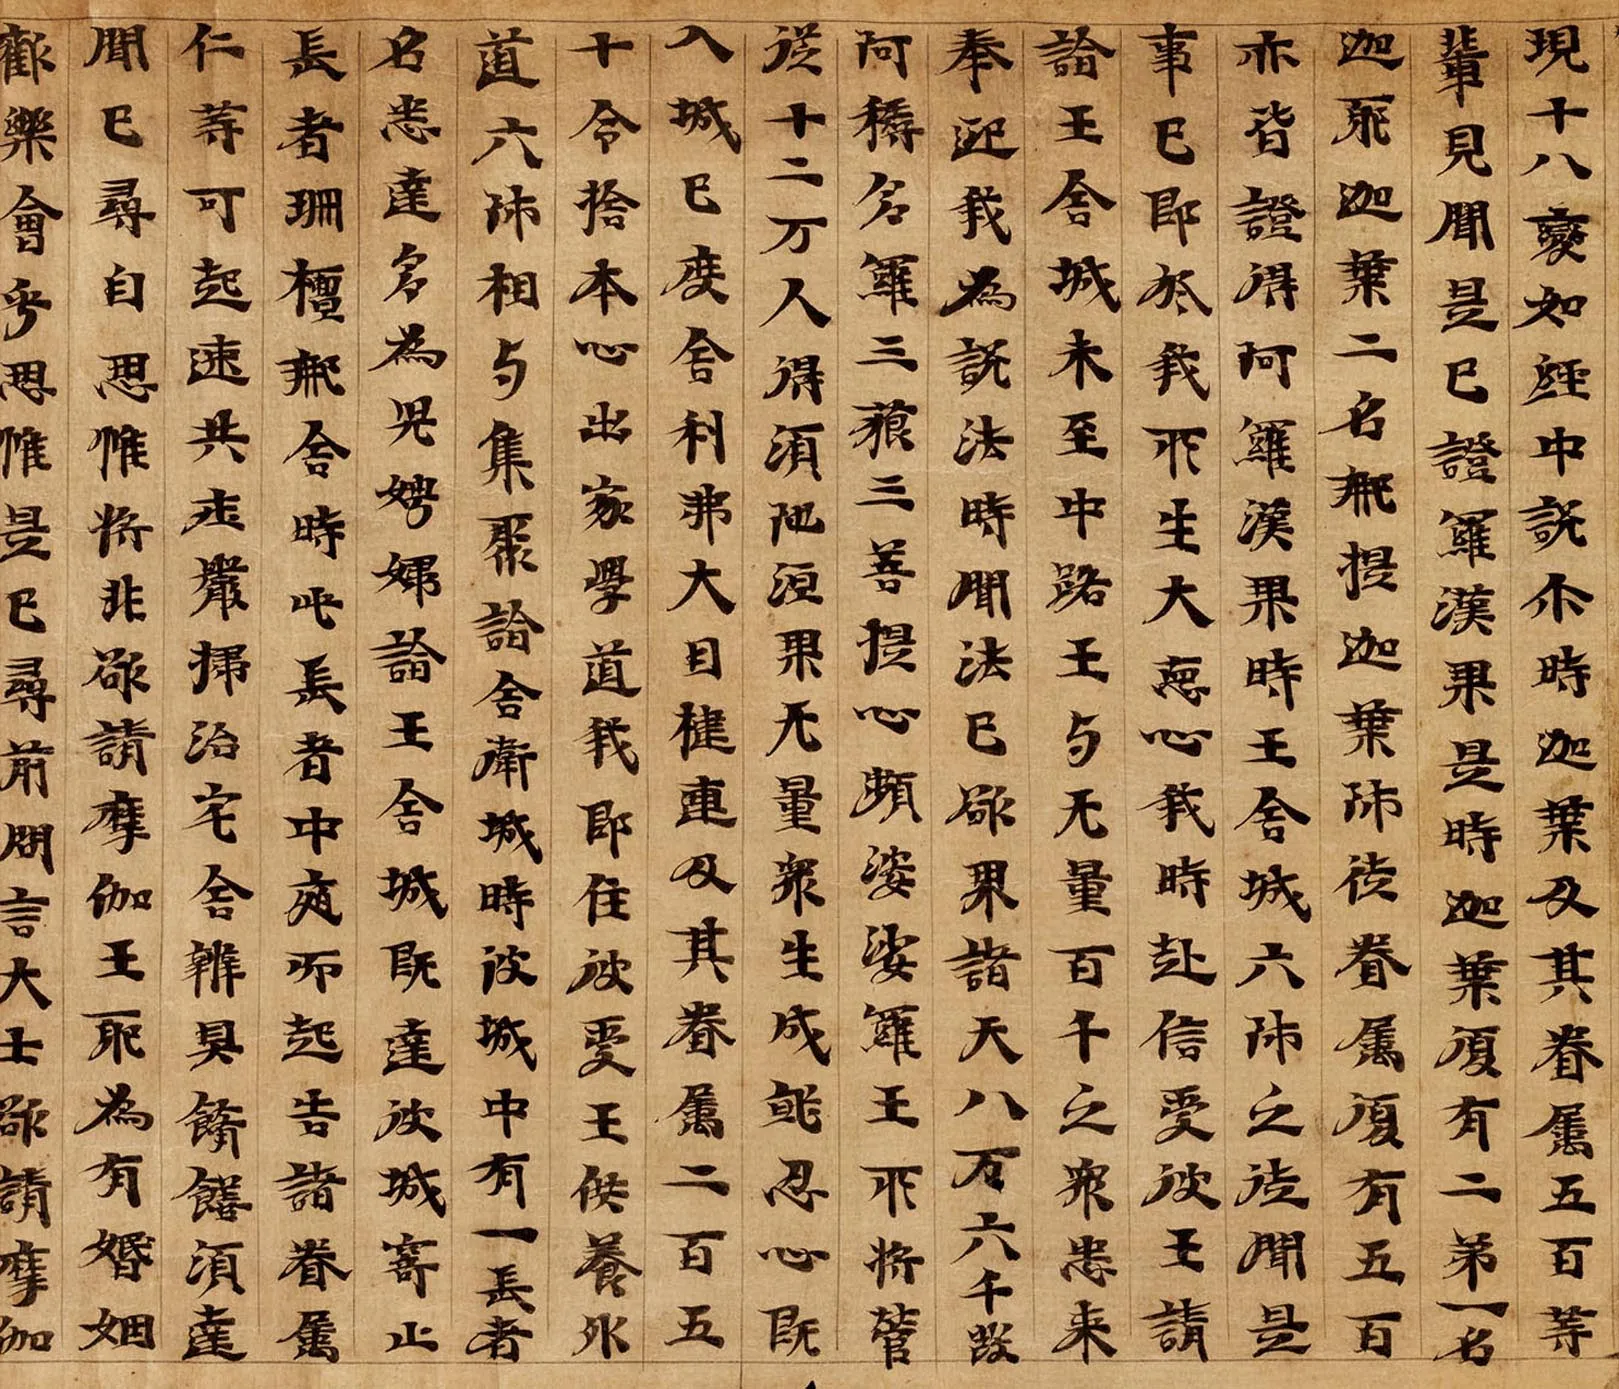 現十八變如經中說尒時迦葉及其眷属五百等
輩見聞是已證羅漢果是時迦葉復有二弟一名
迦耶迦葉二名那提迦葉師徒眷属復有五百
亦皆證得阿羅漢果時王舍城六師之徒聞是
事已即於我所生大惡心我時赴信受彼王請
詣王舍城未至中路王与无量百千之衆悉来
奉迎我為說法時聞法已欲界諸天八万六千發
阿耨多羅三藐三菩提心頻婆娑羅王所將營
從十二万人得須陁洹果无量衆生成就忍心既
入城已度舍利弗大目揵連及其眷属二百五
十令捨本心出家學道我即住彼受王供養外
道六師相与集聚詣舍衛城時彼城中有一長者
名悉達多為兒娉婦詣王舍城既達彼城寄止
長者珊檀那舍時此長者中夜而起告諸眷属
仁等可起速共庄嚴掃治宅舍辦具餚饍須達
聞已尋自思惟將非欲請摩伽王耶為有婚姻
歡樂會乎思惟是已尋前問言大士欲請摩伽